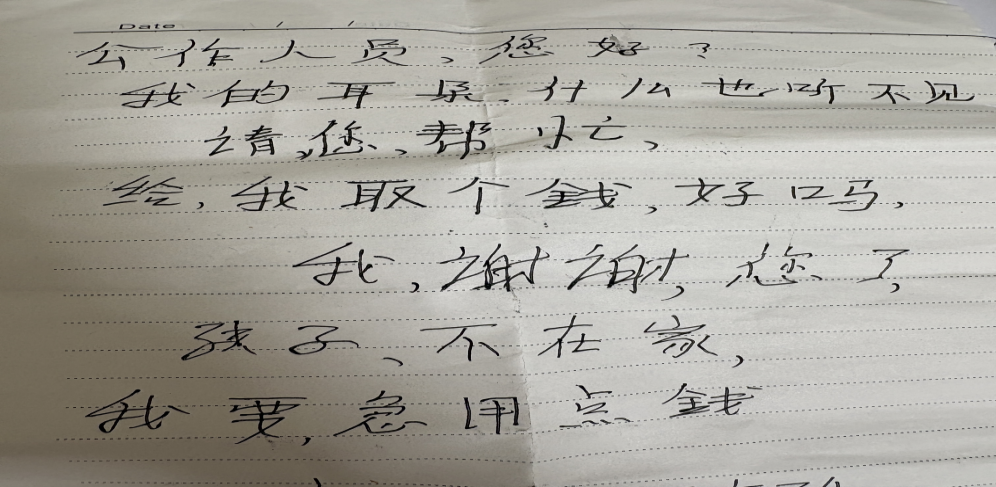 Date / /
公作人员、您好?
我的耳朵.什么也听不见
请,您、帮忙,
给,我取个錢,好吗,
我,谢谢,您了,
孩子、不在家,
我要,急用点錢